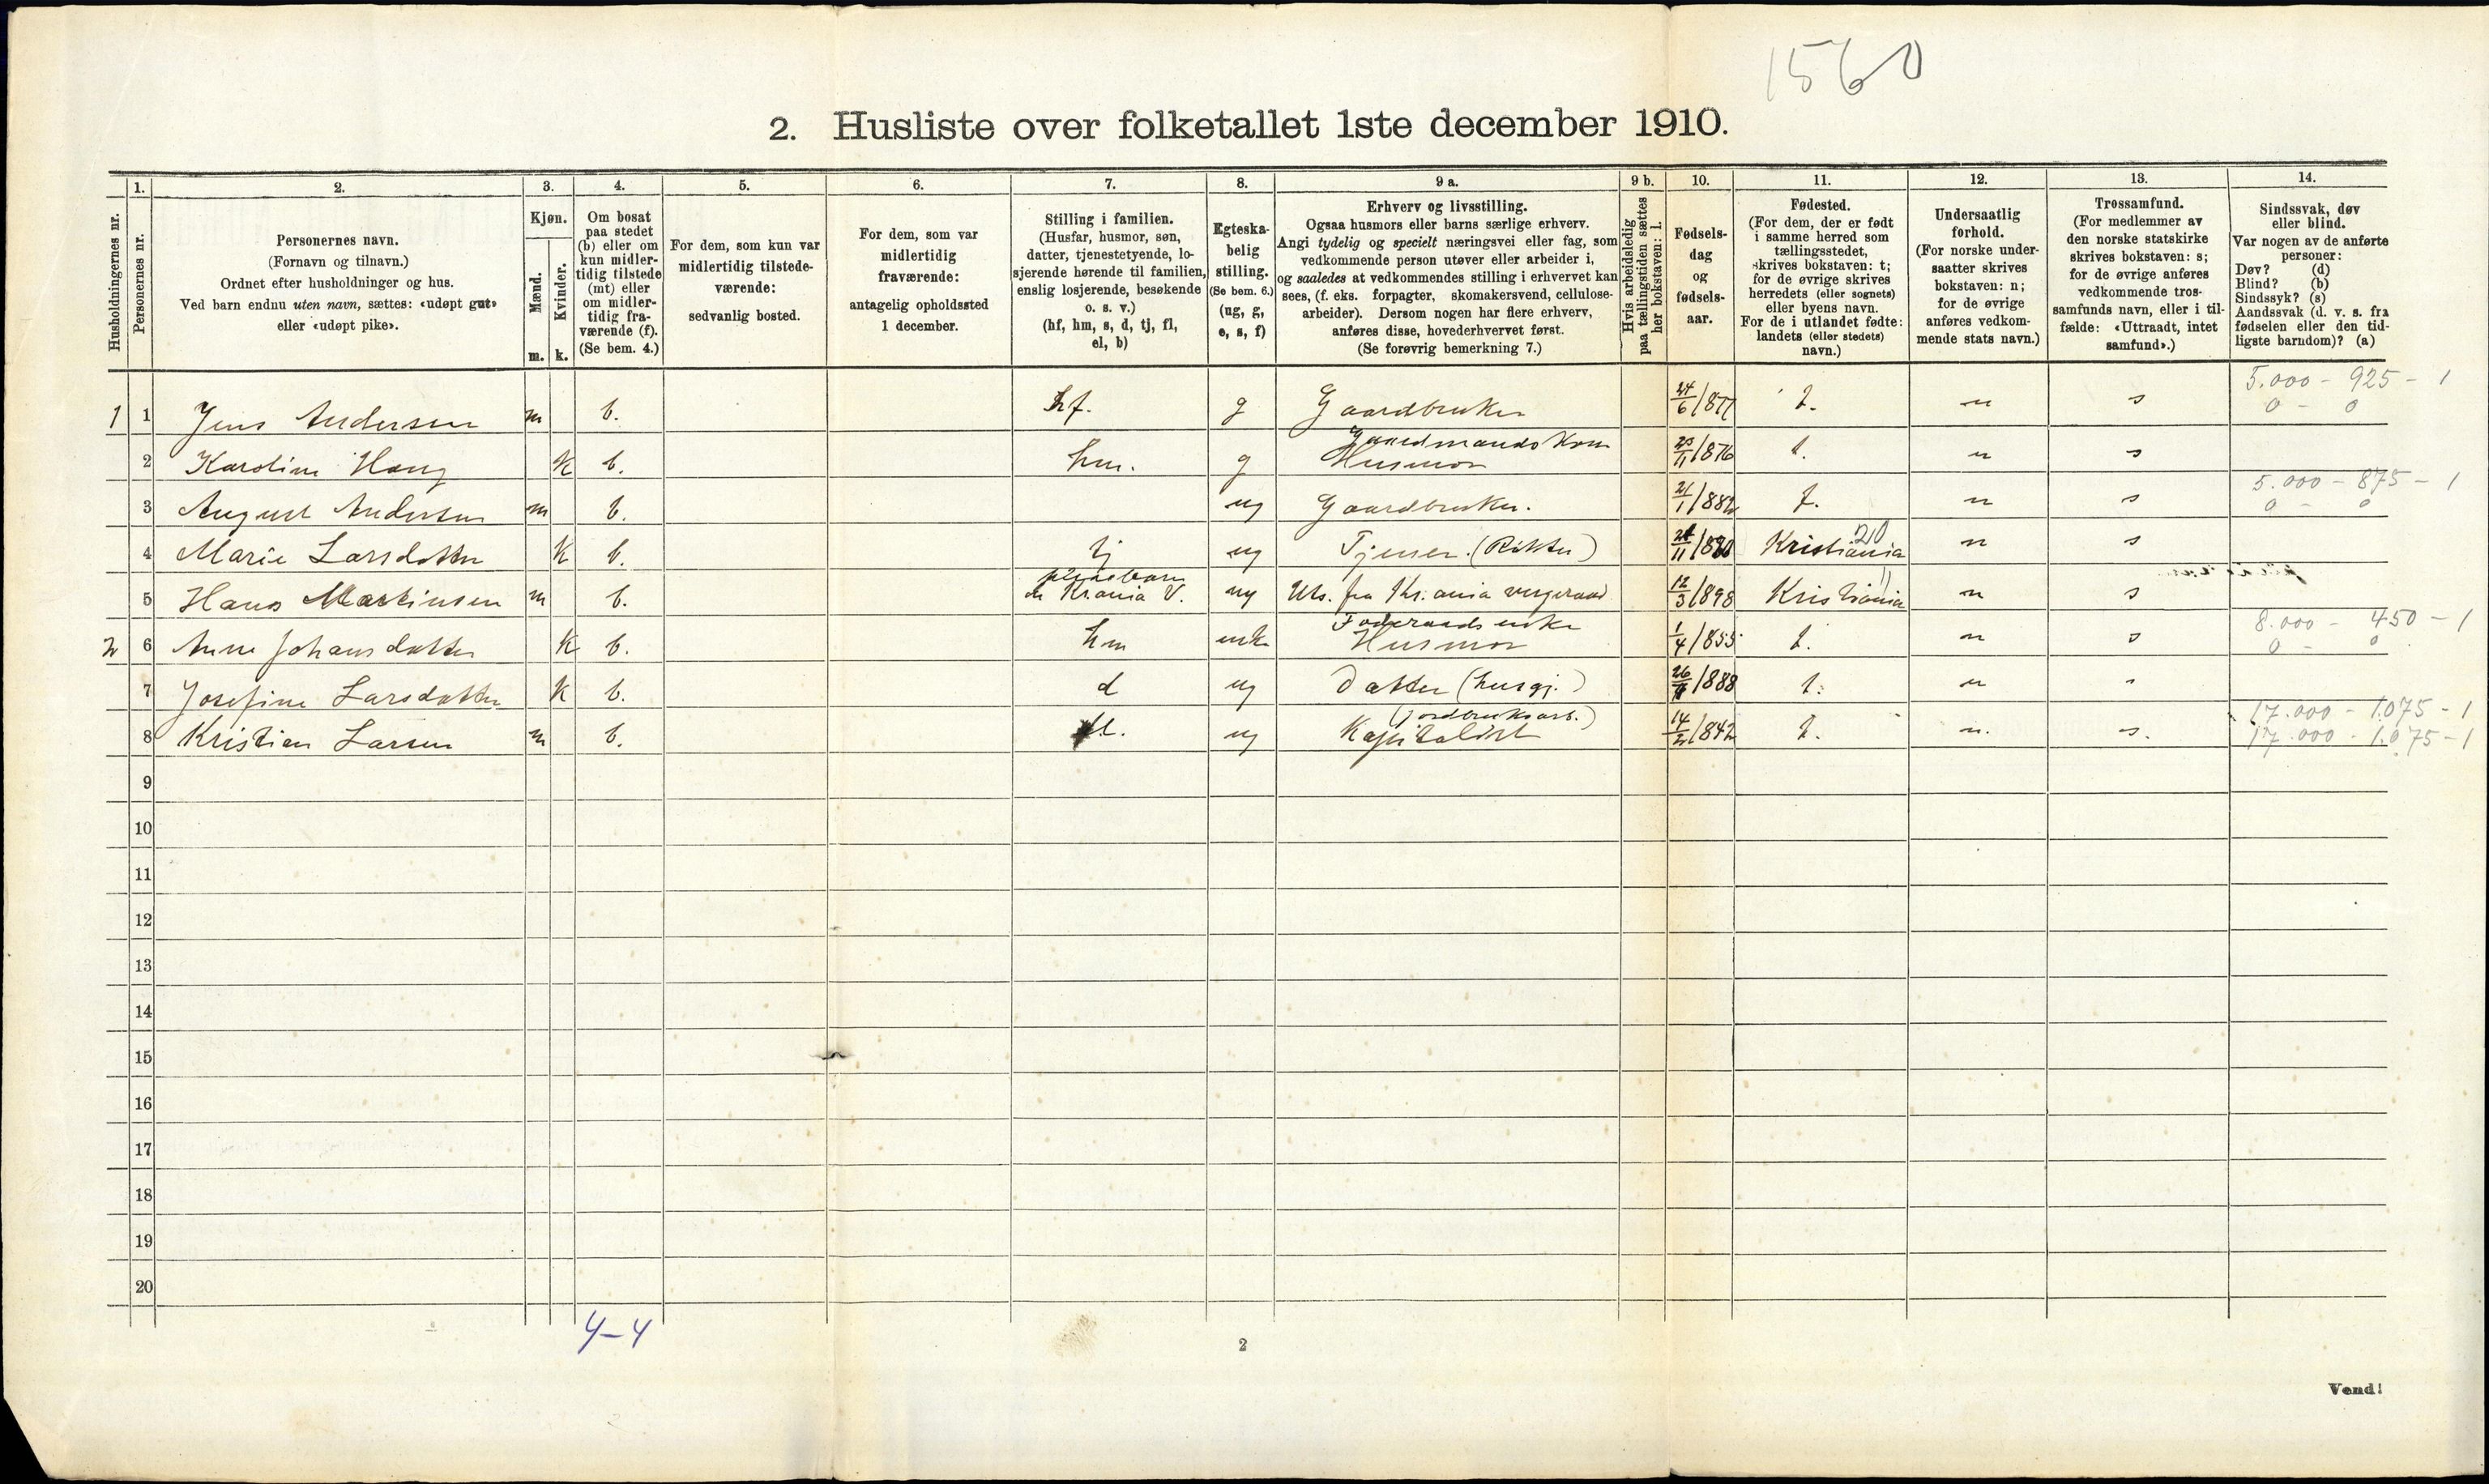 1560
2. Husliste over folketallet 1ste december 1910.
1. 2. 3. 4. 5. 6. 7. 8. 9 a. 9 b. 10. 11. 12. 13. 14.
Husholdningernes nr.
Personernes nr.
Personernes navn.
(Fornavn og tilnavn.)
Ordnet efter husholdninger og hus.
Ved barn endnu uten navn, sættes: «udøpt gut»
eller «udøpt pike».
Kjøn.
Mænd.
Kvinder.
m. k.
Om bosat
paa stedet
(b) eller om
kun midler-
tidig tilstede
(mt) eller
om midler-
tidig fra-
værende (f).
(Se bem. 4.)
For dem, som kun var
midlertidig tilstede-
værende:
sedvanlig bosted.
For dem, som var
midlertidig
fraværende:
antagelig opholdssted
1 december.
Stilling i familien.
(Husfar, husmor, søn,
datter, tjenestetyende, lo-
sjerende hørende til familien,
enslig losjerende, besøkende
o. s. v.)
(hf, hm, s, d, tj, fl,
el, b)
Egteska-
belig
stilling.
(Se bem. 6.)
(ug, g,
e, s, f)
Erhverv og livsstilling.
Ogsaa husmors eller barns særlige erhverv.
Angi tydelig og specielt næringsvei eller fag, som
vedkommende person utøver eller arbeider i,
og saaledes at vedkommendes stilling i erhvervet kan
sees, (f. eks. forpagter, skomakersvend, cellulose-
arbeider). Dersom nogen har flere erhverv,
anføres disse, hovederhvervet først.
(Se forøvrig bemerkning 7.)
Hvis arbeidsledig
paa tællingstiden sættes
her bokstaven: l.
Fødsels-
dag
og
fødsels-
aar.
Fødested.
(For dem, der er født
i samme herred som
tællingsstedet,
skrives bokstaven: t;
for de øvrige skrives
herredets (eller sognets)
eller byens navn.
For de i utlandet fødte:
landets (eller stedets)
navn.)
Undersaatlig
forhold.
(For norske under-
saatter skrives
bokstaven: n;
for de øvrige
anføres vedkom-
mende stats navn.)
Trossamfund.
(For medlemmer av
den norske statskirke
skrives bokstaven: s;
for de øvrige anføres
vedkommende tros-
samfunds navn, eller i til-
fælde: «Uttraadt, intet
samfund».)
Sindssvak, døv
eller blind.
Var nogen av de anførte
personer:
Døv? (d)
Blind? (b)
Sindssyk? (s)
Aandssvak (d. v. s. fra
fødselen eller den tid-
ligste barndom)? (a)
5.000 - 925 - 1
1 1 Jens Andersen m b. hf. g Gaardbruker 24/6/877 t. n s 0 - 0
Gaardmandskone
2 Karoline Haug k b. hm. g Husmor 25/11/876 t. n s
5.000 - 875 - 1
3 August Andersen m b. ug Gaardbruker. 21/1/882 t. n s 0 - 0
20
4 Marie Larsdatter k b. tj ug Tjener. 11/890 Kristiania n s
pleiebarn 11
5 Hans Martinsen m b. Krania V. ug Uts. fra Kr.ania vergeraad 12/3/898 Kristiania n s
Føderaads enke 8.000 - 450 - 1
2 6 Anne Johansdatter k b. hm enke Husmor 1/4/855 t. n s 0 - 0
7 Josefine Larsdatter k b. d ug Datter (husgj.) 26/888 t. n s
(jordbruksarb.) 17.000 - 1.075 - 1
8 Kristian Larsen m b. ug Kapitalist 14/2/842 t. n. s. 17.000 - 1.075 - 1
9
10
11
12
13
14
15
16
17
18
19
20
4-4
2
Vend!